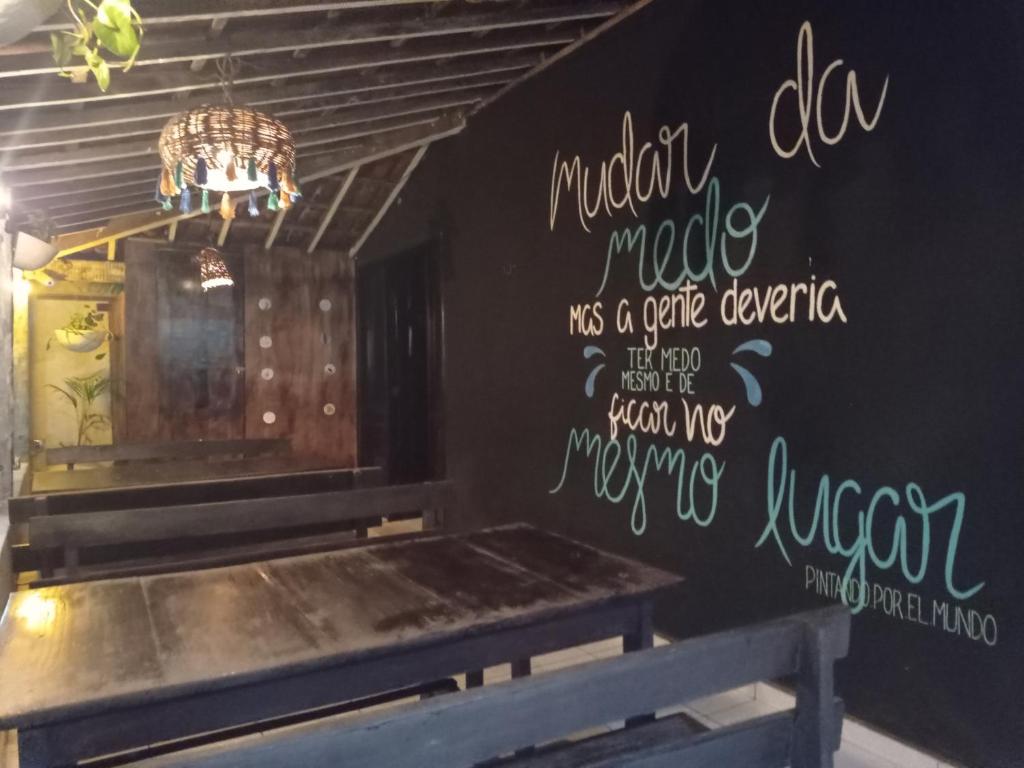 mudar da
medo
mas a gente deveria
TER MEDO
MESMO E DE
ficar no
mesmo lugar
PINTANDO.POR.EL.MUNDO